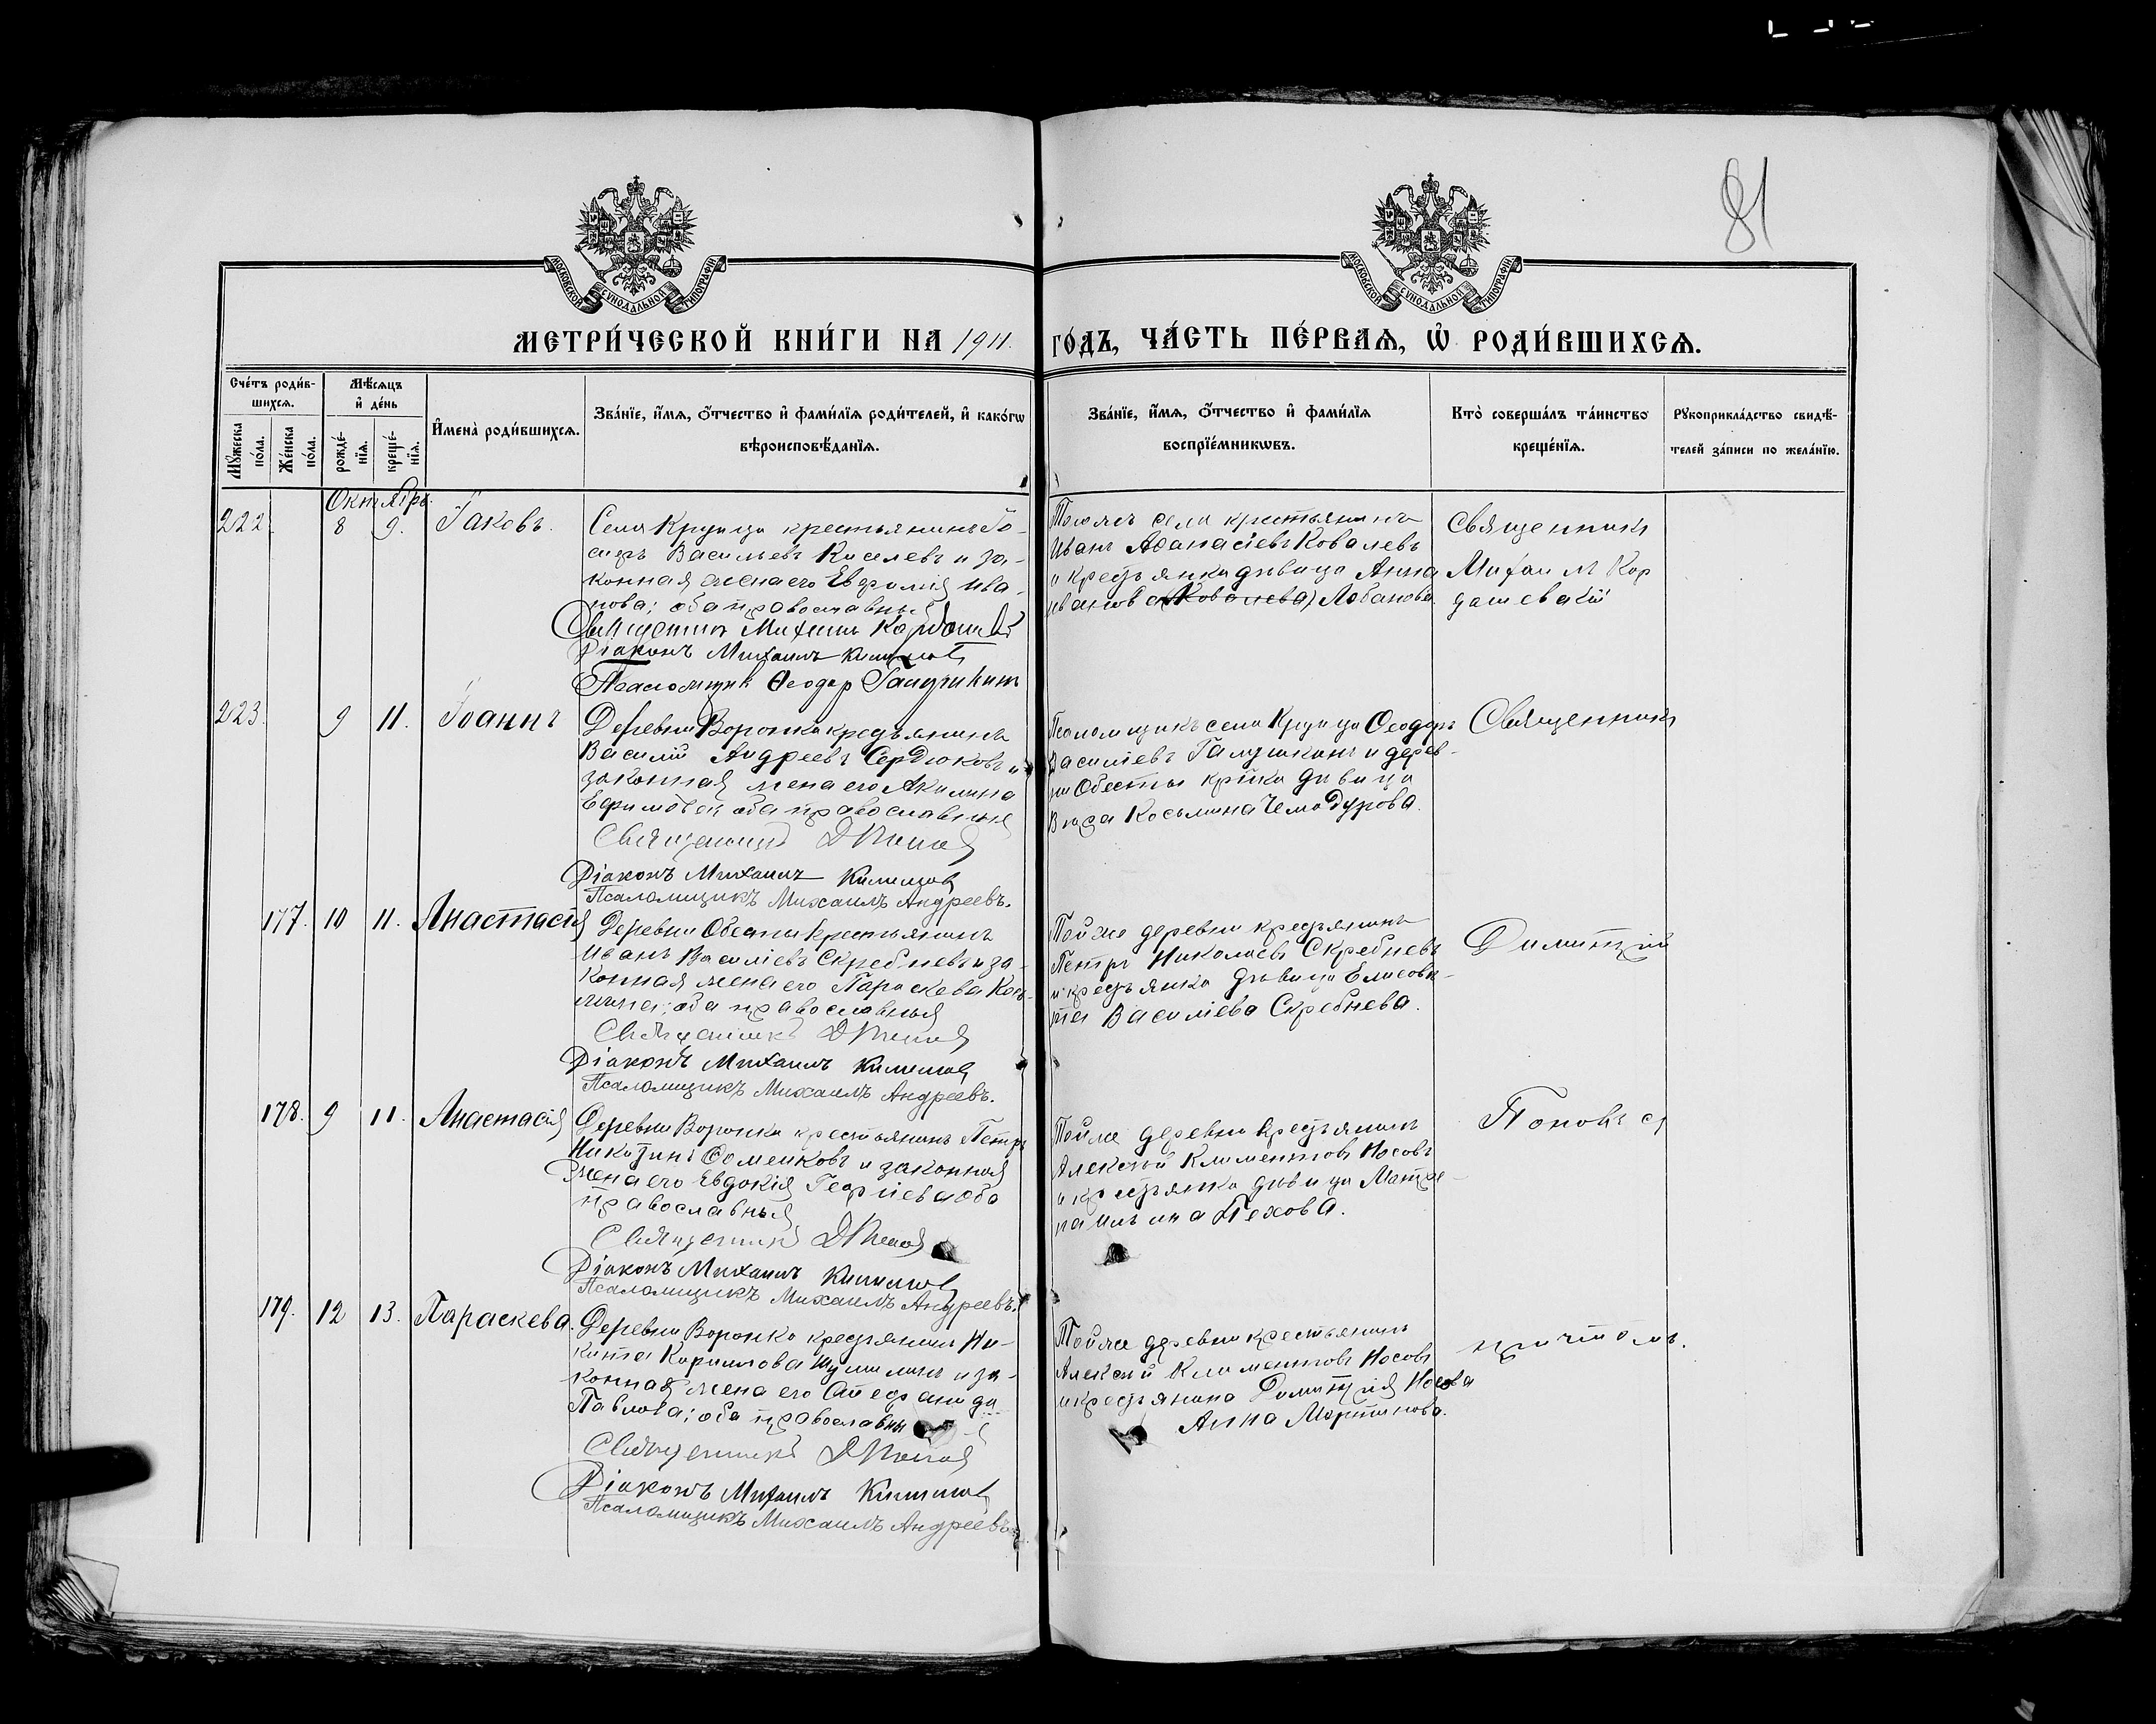 81
МОСКОВСКОЙ СУНОДАЛЬНОЙ ТИПОГРАФІИ
МОСКОВСКОЙ СУНОДАЛЬНОЙ ТИПОГРАФІИ
МЕТРИ́ЧЕСКОЙ КНИ́ГИ НА 1911. ГО́ДЪ, ЧА́СТЬ ПЕ́РВАѦ, Ѡ҆ РОДИ́ВШИХСѦ.
Сче́тъ роди́в-
шихсѧ.
Мꙋ́жеска
по́ла.
Же́нска
по́ла.
Мѣ́сѧцъ
и҆ де́нь
рожде́-
нїѧ.
креще́-
нїѧ.
И҆мена̀ роди́вшихсѧ.
Зва́нїе, и҆́мѧ, ѻ҆́тчество и҆ фами́лїѧ роди́телей, и҆ како́гѡ
вѣроисповѣ́данїѧ.
Зва́нїе, и҆́мѧ, ѻ҆́тчество и҆ фами́лїѧ
воспрїе́мникѡвъ.
Кто̀ соверша́лъ та́инство
креще́нїѧ.
Рꙋкоприкла́дство свидѣ́-
телей за́писи по жела́нїю.
Октябрь.
222. 8 9. Іаковъ.
Села Крупца крестьянинъ Іо-
сифъ Васильевъ Киселевъ и за-
конная жена его Евфимія Ива-
нова; оба православные
Священникъ Михаилъ
Діаконъ Михаилъ
Псаломщикъ Ѳеодоръ
Того же села крестьянинъ
Иванъ Аѳанасіевъ Ковалевъ
и крестьянка дѣвица Анна
Иванова (Ковалева) Лобанова.
Священникъ
Михаилъ Кор
дашевскій
223. 9 11. Іоаннъ
Деревни Воронка крестьянинъ
Василій Андреевъ Сердюковъ и
законная жена его Акилина
Ефимова; оба православные
Священникъ Д Поповъ
Діаконъ Михаилъ
Псаломщикъ Михаилъ Андреевъ.
Псаломщикъ села Крупца Ѳеодоръ
Василіевъ Галушкинъ и дерев-
ни Обесты кр-нка дѣвица
Косьмина Чемодурова.
Священникъ
177. 10 11. Анастасія
Деревни Обесты крестьянинъ
Иванъ Василіевъ Скребневъ и за-
конная жена его Параскева Кось-
мина; оба православные
Священникъ Д Поповъ
Діаконъ Михаилъ
Псаломщикъ Михаилъ Андреевъ.
Той же деревни крестьянинъ
Петръ Николаевъ Скребневъ
и крестьянка дѣвица Елисаве-
та Василіева Скребнева.
Димитрій
178. 9 11. Анастасія
Деревни Воронка крестьянинъ Петръ
Никитинъ Ѳоменковъ и законная
жена его Евдокія Георгіева оба
православные
Священникъ Д Поповъ
Діаконъ Михаилъ
Псаломщикъ Михаилъ Андреевъ.
Той же деревни крестьянинъ
Алексій Климентовъ Носовъ
и крестьянка дѣвица Матро-
на Ильина Пехова.
Поповъ съ
179. 12 13. Параскева.
Деревни Воронка крестьянинъ Ни-
кита Кирилловъ Шумилинъ и за-
конная жена его Стефанида
Павлова; оба православные
Священникъ Д Поповъ
Діаконъ Михаилъ
Псаломщикъ Михаилъ Андреевъ
Той же деревни крестьянинъ
Алексій Климентовъ Носовъ
и крестьянина Димитрія Носова
Анна Мартинова.
причтомъ.